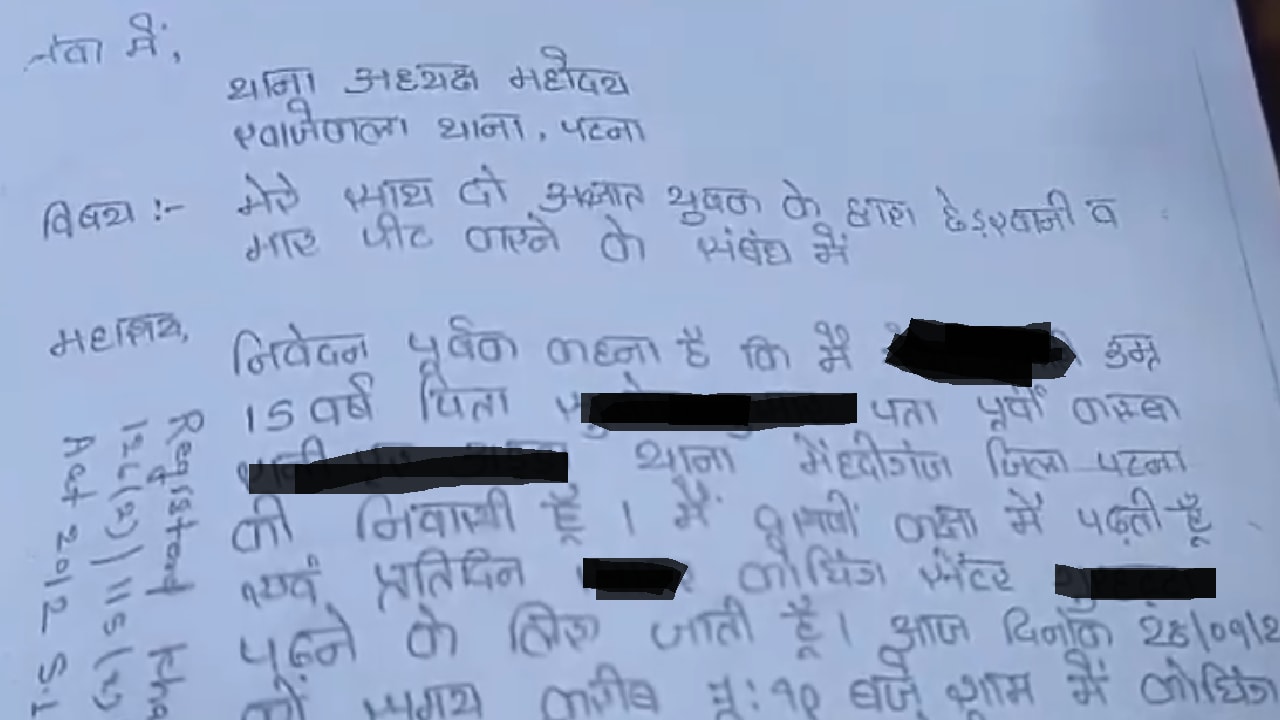 सेवा में,
थाना अध्यक्ष महोदय
ख्वाजेकला थाना, पटना
विषय :- मेरे साथ दो अज्ञात युवक के द्वारा छेड़खानी व
मार पीट करने के संबंध में
महाशय,
निवेदन पूर्वक कहना है कि मैं उम्र
15 वर्ष पिता पता पूर्वी
थाना मेंहदीगंज जिला पटना
की निवासी हूँ । मैं कक्षा में पढ़ती हूँ
एवं प्रतिदिन कोचिंग सेंटर
पढ़ने के लिए जाती हूँ। आज दिनांक
को समय करीब बजे शाम में कोचिंग
Registerd
126(2)/115(2)
Act 2012